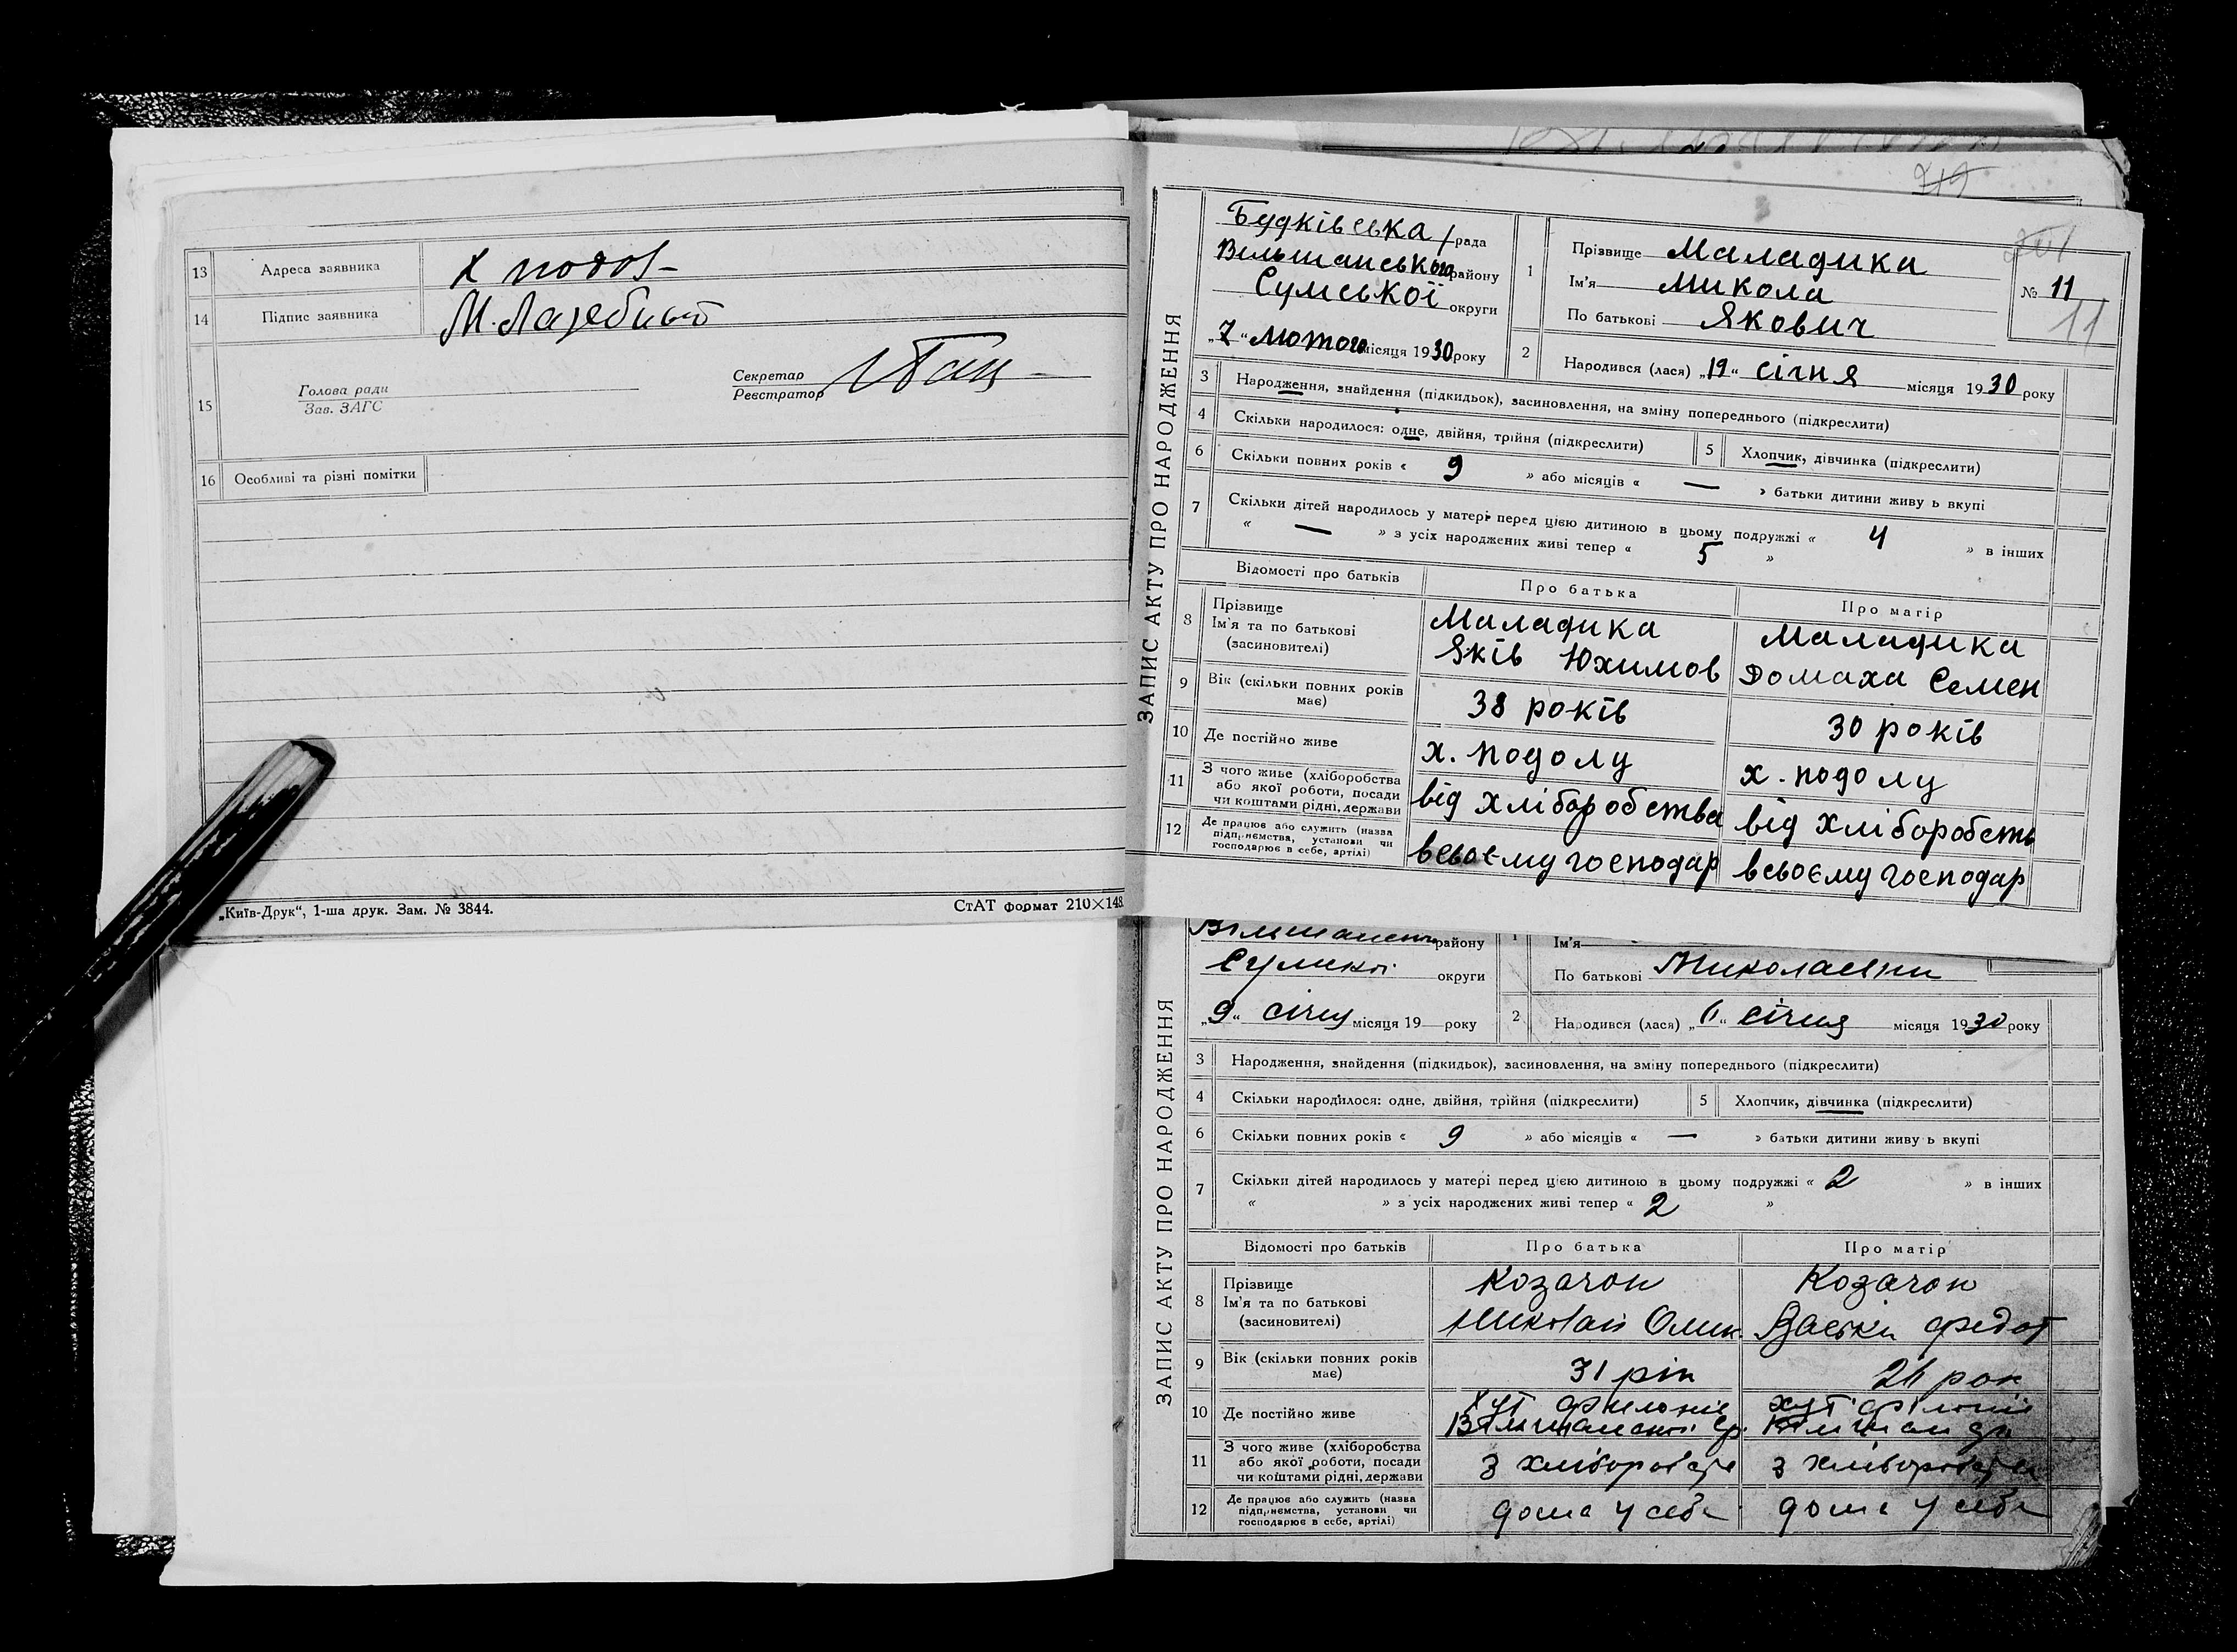 13 Адреса заявника х подол
14 Підпис заявника М. Лазебний
15 Голова ради
Зав. ЗАГС
Секретар
Реєстратор
16 Особливі та різні помітки
„Київ-Друк“, 1-ша друк. Зам. № 3844.
СтАТ формат 210×148.
719
ЗАПИС АКТУ ПРО НАРОДЖЕННЯ
Будківська рада
Вільшанського району
Сумської округи
„7“ лютого місяця 1930 року
1 Прізвище Маладика
Ім'я Микола
По батькові Якович
№ 11
11
2 Народився (лася) „19“ січня місяця 1930 року
3 Народження, знайдення (підкидьок), засиновлення, на зміну попереднього (підкреслити)
4 Скільки народилося: одне, двійня, трійня (підкреслити)
5 Хлопчик, дівчинка (підкреслити)
6 Скільки повних років « 9 » або місяців « — » батьки дитини живу ь вкупі
7 Скільки дітей народилось у матері перед цією дитиною в цьому подружжі « 4 » в інших
« — » з усіх народжених живі тепер « 5 »
Відомості про батьків Про батька Про матір
8 Прізвище Маладика Маладика
Ім'я та по батькові Яків Юхимов Домаха Семен
(засиновителі)
9 Вік (скільки повних років має) 38 років 30 років
10 Де постійно живе х. подолу х. подолу
11 З чого живе (хліборобства
або якої роботи, посади
чи коштами рідні, держави
від хліборобства від хліборобств
12 Де працює або служить (назва
підприємства, установи чи
господарює в себе, артілі)
в своєму господар в своєму господар
ЗАПИС АКТУ ПРО НАРОДЖЕННЯ
району
округи
„9“ січня місяця 19 — року
1 Ім'я
По батькові Миколаевни
2 Народився (лася) „6“ січня місяця 1930 року
3 Народження, знайдення (підкидьок), засиновлення, на зміну попереднього (підкреслити)
4 Скільки народилося: одне, двійня, трійня (підкреслити)
5 Хлопчик, дівчинка (підкреслити)
6 Скільки повних років « 9 » або місяців « — » батьки дитини живу ь вкупі
7 Скільки дітей народилось у матері перед цією дитиною в цьому подружжі « 2 » в інших
« » з усіх народжених живі тепер « 2 »
Відомості про батьків Про батька Про матір
8 Прізвище Козачок Козачок
Ім'я та по батькові Николай Федот
(засиновителі)
9 Вік (скільки повних років має) 31 рік 26 рок
10 Де постійно живе хут хут
11 З чого живе (хліборобства
або якої роботи, посади
чи коштами рідні, держави
з хліборобств з хліборобств
12 Де працює або служить (назва
підприємства, установи чи
господарює в себе, артілі)
дома у себе дома у себе